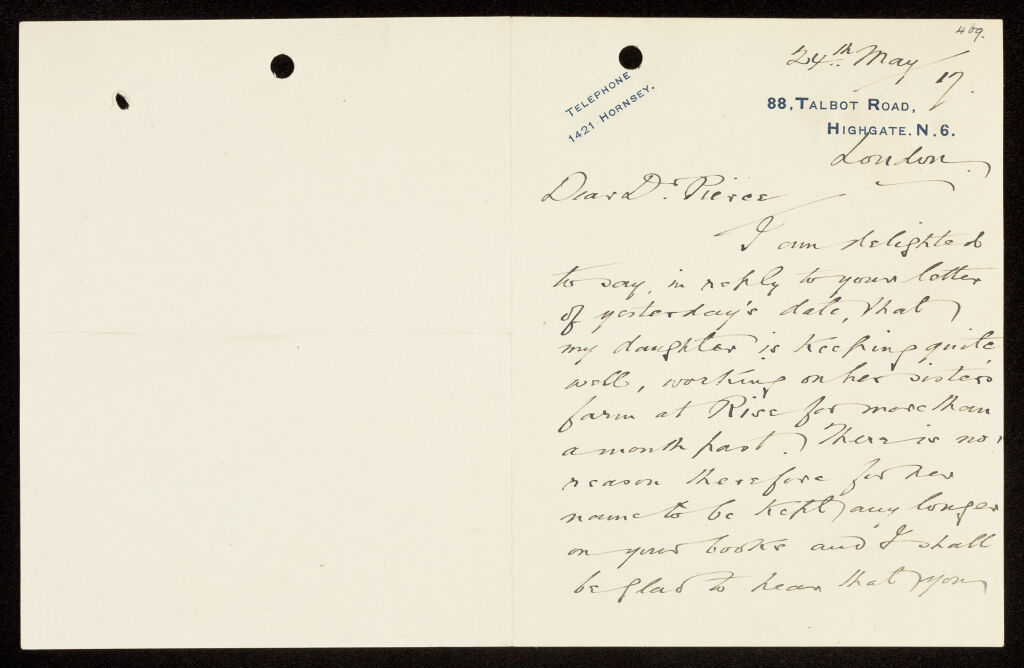 409.
24th May / 17.
TELEPHONE
1421 HORNSEY.
88, TALBOT ROAD,
HIGHGATE. N. 6.
London.
Dear Dr. Pierce
I am delighted
to say, in reply to your letter
of yesterday's date, that
my daughter is keeping quite
well, working on her sisters
farm at Rise for more than
a month past. There is no
reason therefore for her
name to be kept any longer
on your books and I shall
be glad to hear that you